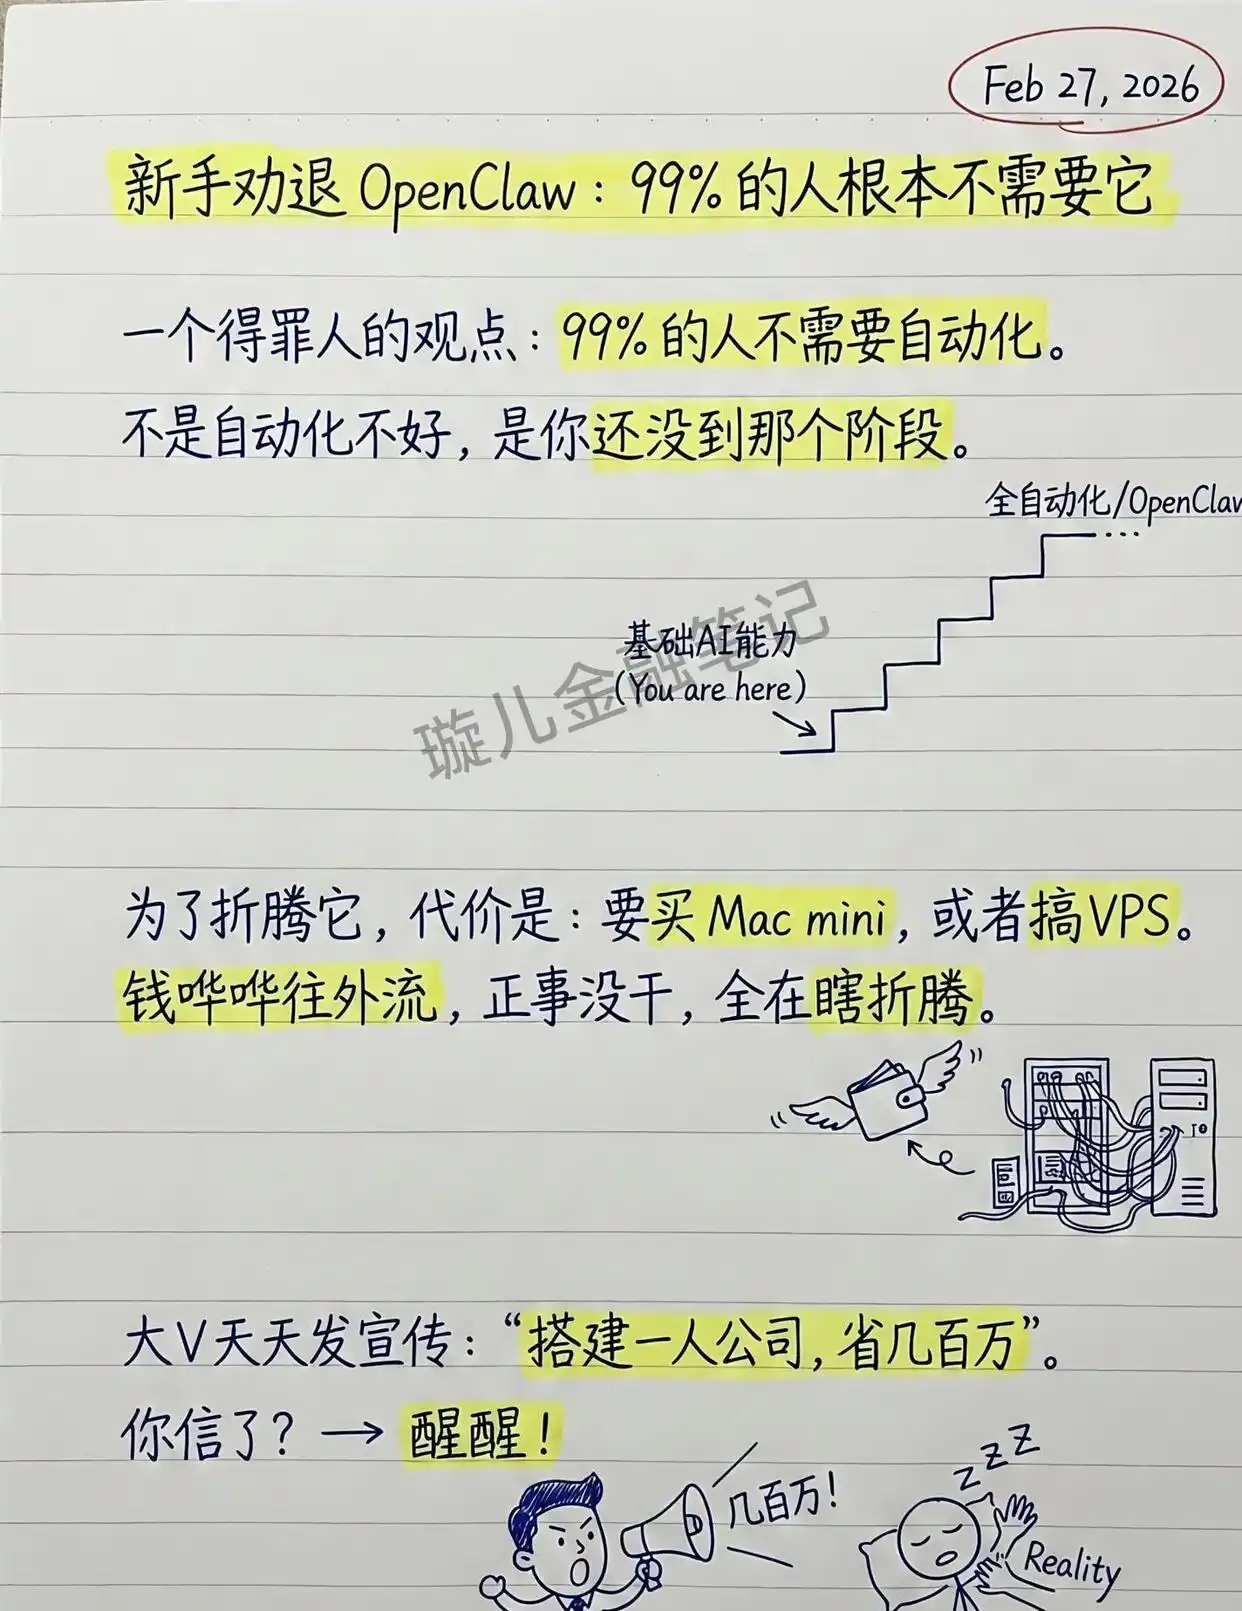 Feb 27, 2026
新手劝退 OpenClaw：99% 的人根本不需要它
一个得罪人的观点：99% 的人不需要自动化。
不是自动化不好，是你还没到那个阶段。
全自动化/OpenClaw
基础AI能力
(You are here)
璇儿金融笔记
为了折腾它，代价是：要买 Mac mini，或者搞VPS。
钱哗哗往外流，正事没干，全在瞎折腾。
大V天天发宣传：“搭建一人公司，省几百万”。
你信了？→ 醒醒！
z z Z
几百万！
Reality